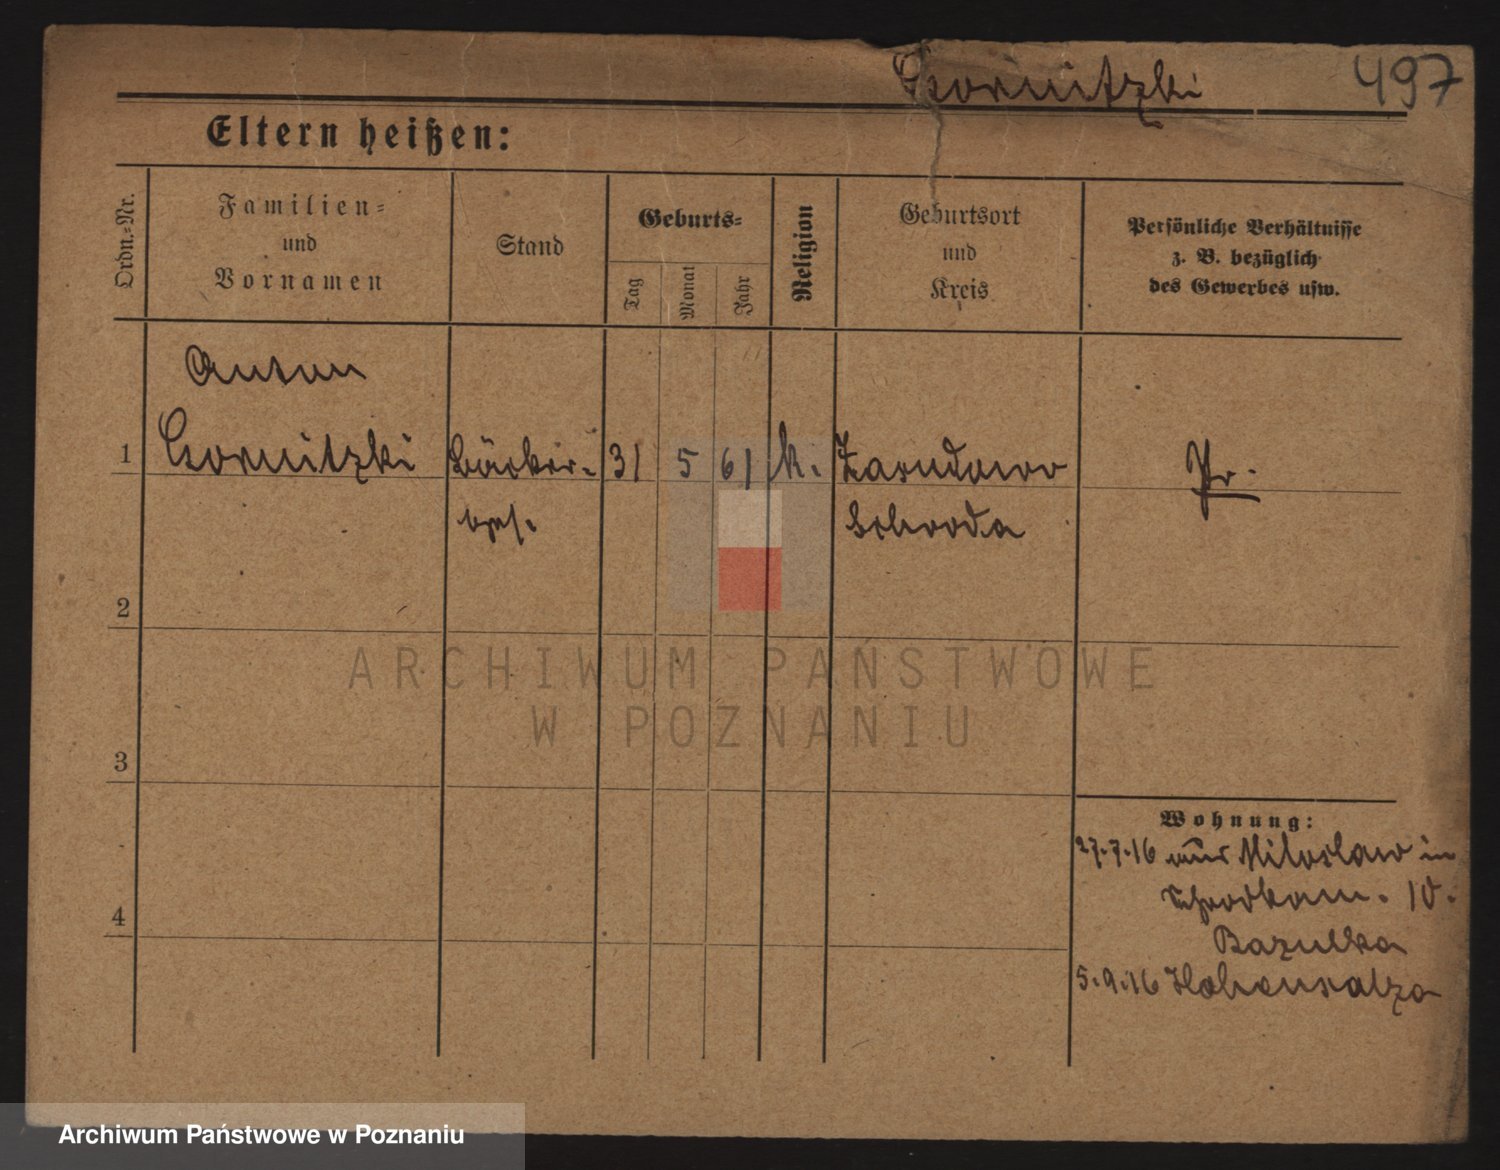 Czornitzki 497
Eltern heißen:
Ordn.-Nr.
Familien-
und
Vornamen
Stand
Geburts-
Tag
Monat
Jahr
Religion
Geburtsort
und
Kreis
Persönliche Verhältnisse
z. B. bezüglich
des Gewerbes usw.
Anton
1 Czornitzki Bäcker- 31 5 61 k. Pr.
Schroda
2
3
4
Wohnung:
27.7.16 aus Miloslaw in
10.
5.9.16 Hohensalza
ARCHIWUM PAŃSTWOWE
W POZNANIU
Archiwum Państwowe w Poznaniu